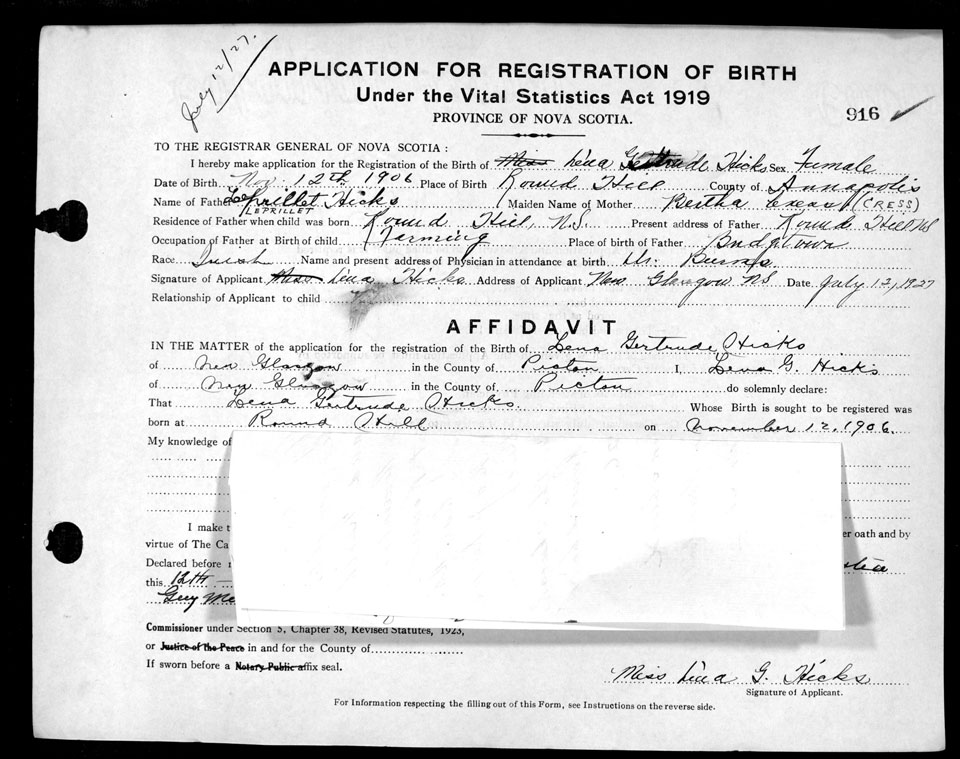 July 12/27.
APPLICATION FOR REGISTRATION OF BIRTH
Under the Vital Statistics Act 1919
PROVINCE OF NOVA SCOTIA.
916
TO THE REGISTRAR GENERAL OF NOVA SCOTIA:
I hereby make application for the Registration of the Birth of Miss Lena Gertrude Hicks Sex Female
Date of Birth Nov. 12th 1906 Place of Birth Round Hill County of Annapolis
Name of Father Leprillet Hicks Maiden Name of Mother Bertha (CRESS)
LEPRILLET
Residence of Father when child was born Round Hill, N.S. Present address of Father Round Hill NS
Occupation of Father at Birth of child Farming Place of birth of Father
Race Name and present address of Physician in attendance at birth Dr.
Signature of Applicant Miss Lena Hicks Address of Applicant New Glasgow NS Date July 12, 1927
Relationship of Applicant to child
AFFIDAVIT
IN THE MATTER of the application for the registration of the Birth of Lena Gertrude Hicks
of New Glasgow in the County of Pictou I, Lena G. Hicks
of New Glasgow in the County of Pictou do solemnly declare:
That Lena Gertrude Hicks. Whose Birth is sought to be registered was
born at Round Hill on November 12, 1906.
My knowledge of
I make t
er oath and by
virtue of The Ca
Declared before
this 12th
Guy Mc
Commissioner under Section 5, Chapter 38, Revised Statutes, 1923,
or Justice of the Peace in and for the County of
If sworn before a Notary Public affix seal.
Miss Lena G. Hicks
Signature of Applicant.
For Information respecting the filling out of this Form, see Instructions on the reverse side.